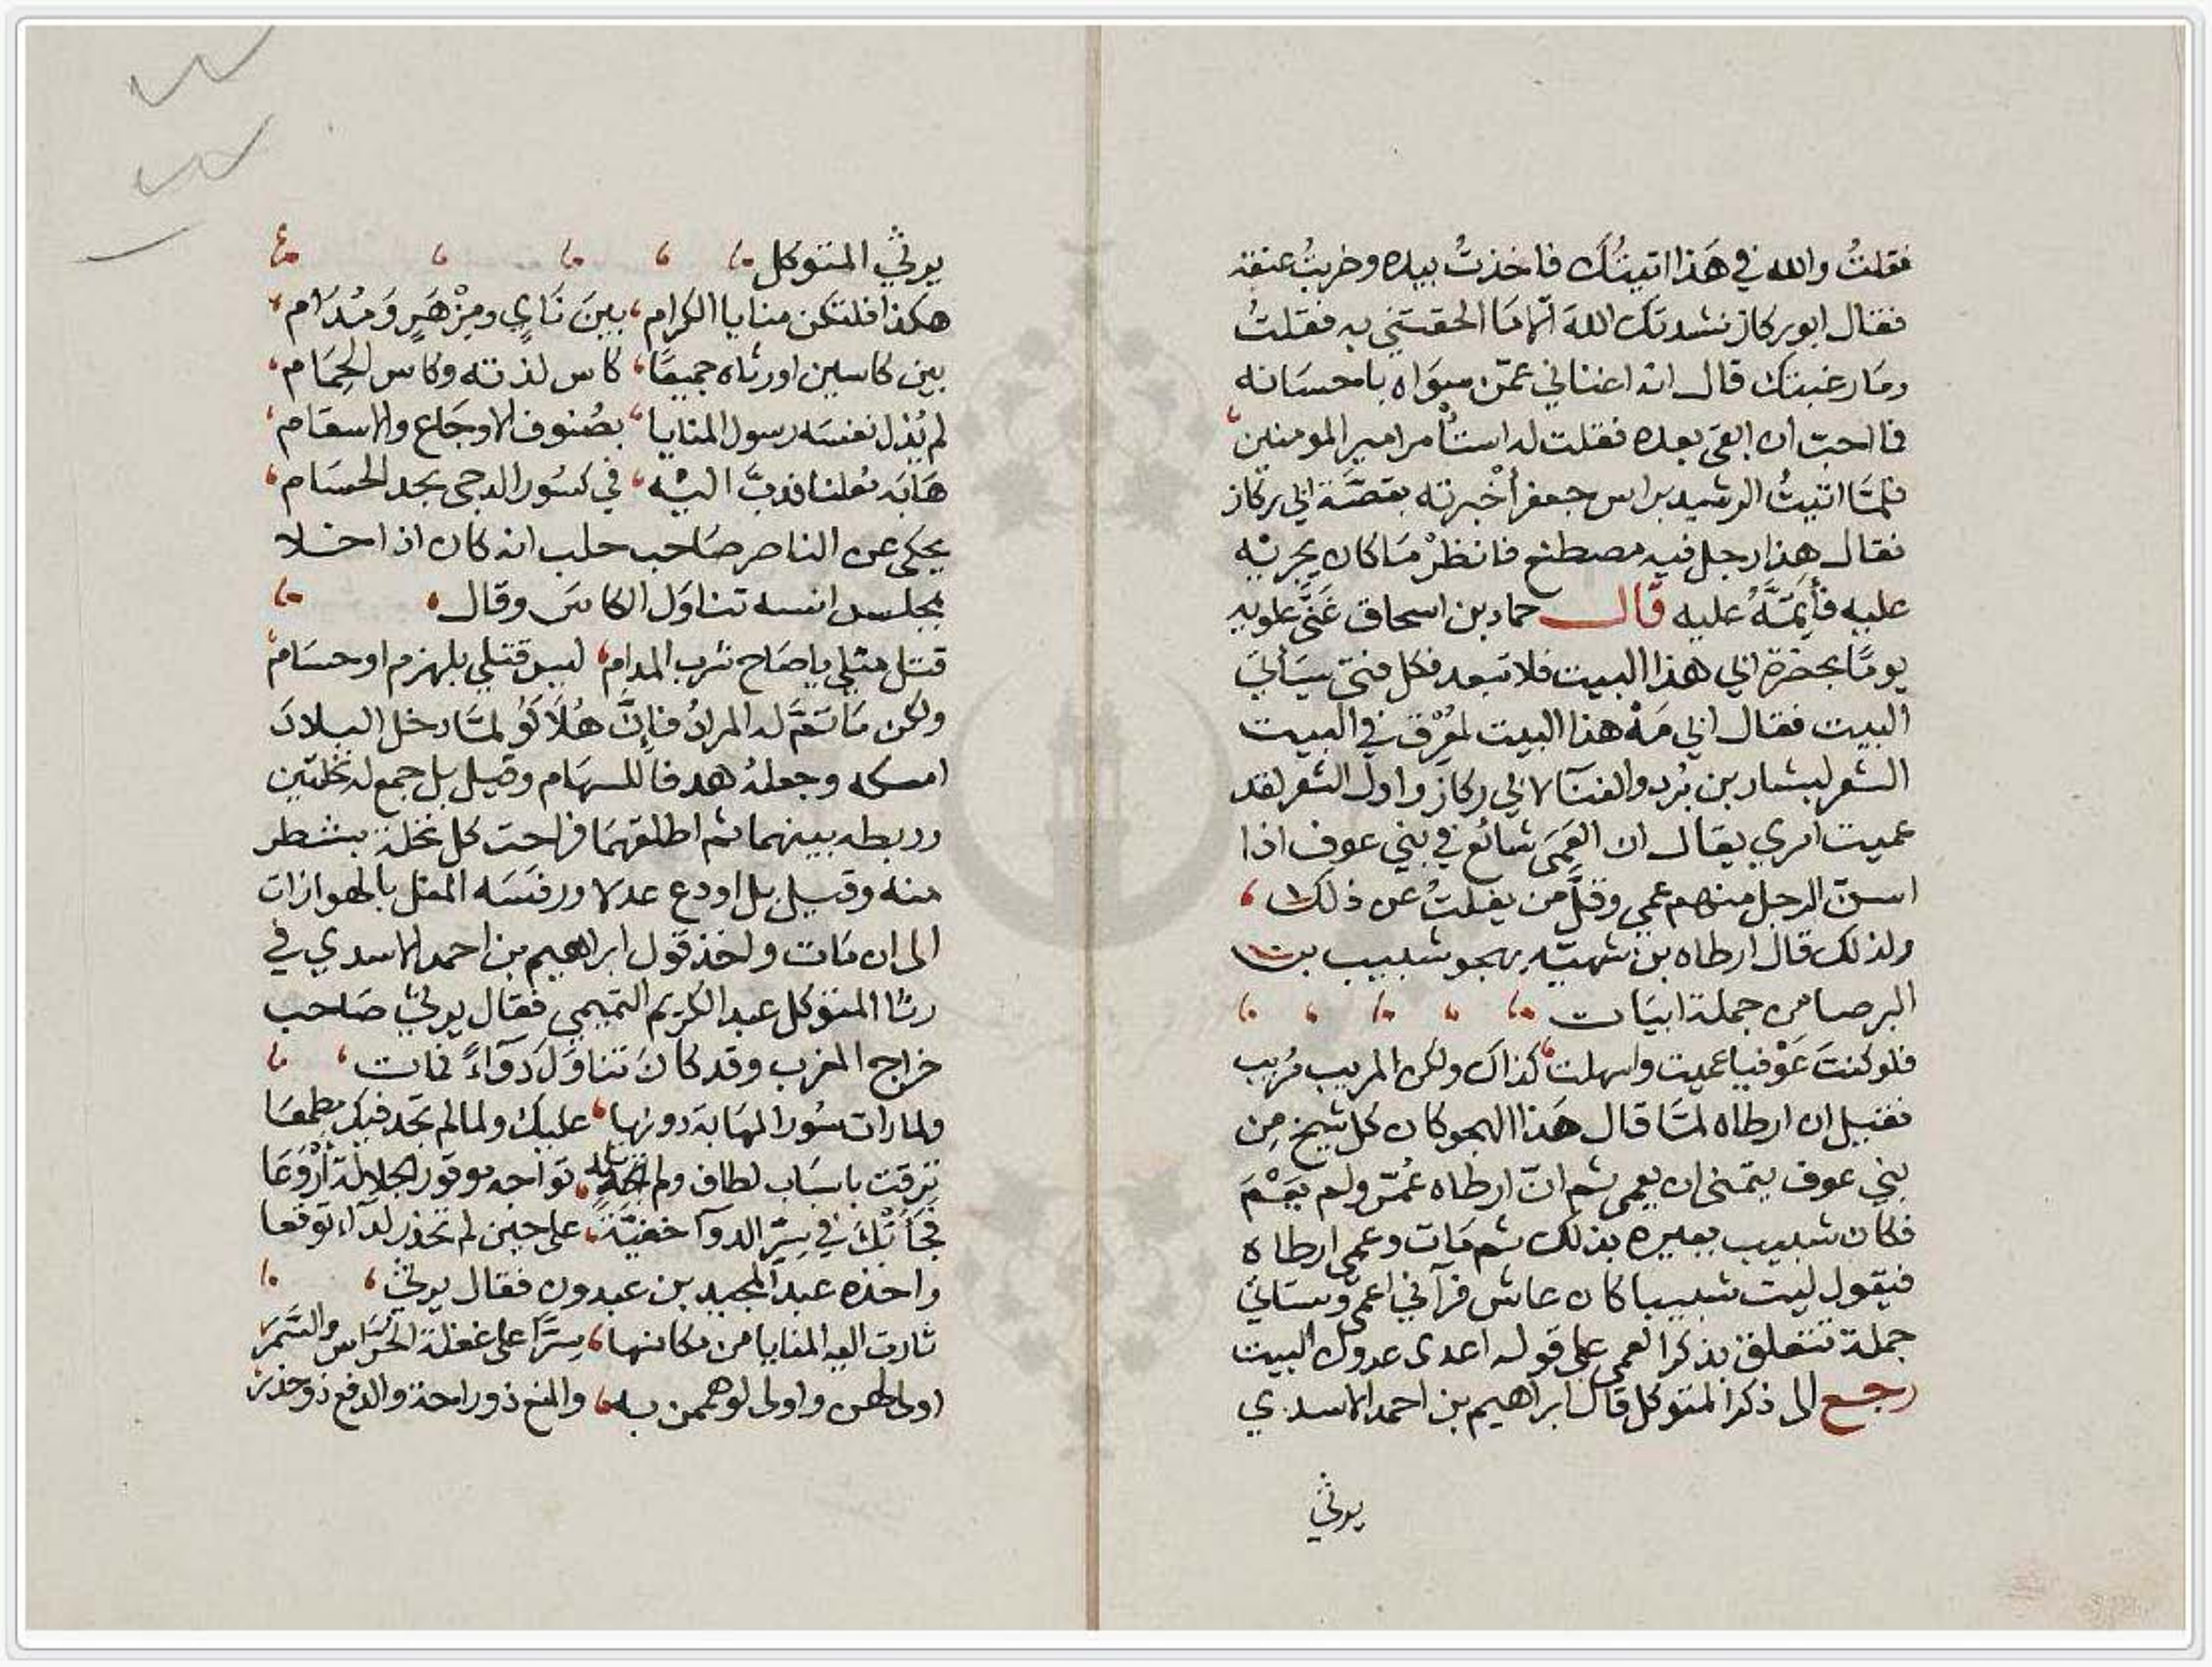 فقلتُ والله في هَذا اتيتُكَ فاخذتُ بيده وضربتُ عنقه
فقال ابو ركاز نشدتك اللهَ الّا مَا الحقتني به فقلتُ
ومَا رغبتك قال انه اغناني عمّن سِوَاه باحسَانه
فما احبّ ان ابقى بعده فقلت له استأمر امير المومنين
فلمّا اتيتُ الرشيد براس جعفر أخبرته بقصّة ابي ركاز
فقال هذا رجل فيه مصطنع فانظرْ مَا كان يجريه
عليه فأَتِمَّهُ عليه قال حماد بن اسحاق غَنَّى علويه
يومًا بحضرة ابي هذا البيت فلا تبعد فكل فتى سيَأتي
البيت فقال ابي مَهْ هذا البيت لمُعْرِق في البيت
الشعر لبشار بن بُرد والغنآ لابي ركاز واول الشعر لقد
عميت امري يقال ان العَمَى شائع في بني عوف اذا
اسنّ الرجل منهم عمي وقلّ من يفلتُ عن ذلك
ولذلك قال ارطاه بن سُهيّه يهجو شبيب بن
البرصا من جملة ابيَات
فلو كنتَ عَوْفيا عميت واسهلت كذاك ولكن المريب مُريب
فقيل ان ارطاه لمّا قال هَذا الهجو كان كل شيخ مِن
بني عوف يتمنى ان يعمى ثم انّ ارطاه عُمّر ولم يَعْمَ
فكان شبيب يعيره بذلك ثم مَات وعمى ارطاه
فيقول ليت شبيبا كان عاش فرآني اعمى وستاتي
جملة تتعلق بذكر العمى على قوله اعدى عدوك البيت
رجع الى ذكر المتوكل قال ابراهيم بن احمد الاسدي
يرثي
يرثي المتوكل
هكذا فلتكن منايا الكرام بينَ نَايٍ ومِزْهَرٍ وَمُدَام
بين كاسين اورثاه جميعًا كاس لذته وكاس الحِمَام
لم يُذل نفسَه رسول المنايا بصُنوف الاوجَاع والاسقام
هَابَه مُعلنا فدبَّ اليْه في كسُور الدجى بحد الحسَام
يحكى عن الناصر صَاحب حلب انه كان اذا خلا
بمجلس انسه تناوَل الكاسَ وقال
قتل مثلي يا صَاح شرب المدام ليس قتلي بلهزم او حسَام
ولكن مَا تمَّ له المرادُ فاِنَّ هُلَاكَوُ لمّا دخل البلادَ
امسكه وجعلهُ هدفا للسهَام وقيل بل جمع له نخلتين
وربطه بينهما ثم اطلقهمَا فراحت كل نخلة بشطر
منه وقيل بل اودع عدلا ورفسَه المغل بالهوازات
الى ان مَات واخذ قول ابراهيم بن احمد الاسدي في
رثا المتوكل عبد الكريم التميمي فقال يرثي صَاحب
خراج المغرب وقد كانَ تناوَلَ دَوَآءً فمات
ولما رات سُور المهَابة دونها عليك ولما لم تجد فيك مطمعَا
ترقت باسبَاب لطاف ولم تكد تواجه موقور الجلالة أَرْوَعَا
فجآتْكَ في سِرّ الدوآ خفيّة على حين لم تحذر لدآء توقعا
واخذه عبد المجيد بن عبدون فقال يرثي
ثارت اليه المنايا من مكانها سِرًّا على غفلة الحُرّاس والسَّمر
اولى لهن واولى لو هممن به والمنع ذو راحة والدفع ذو حذر